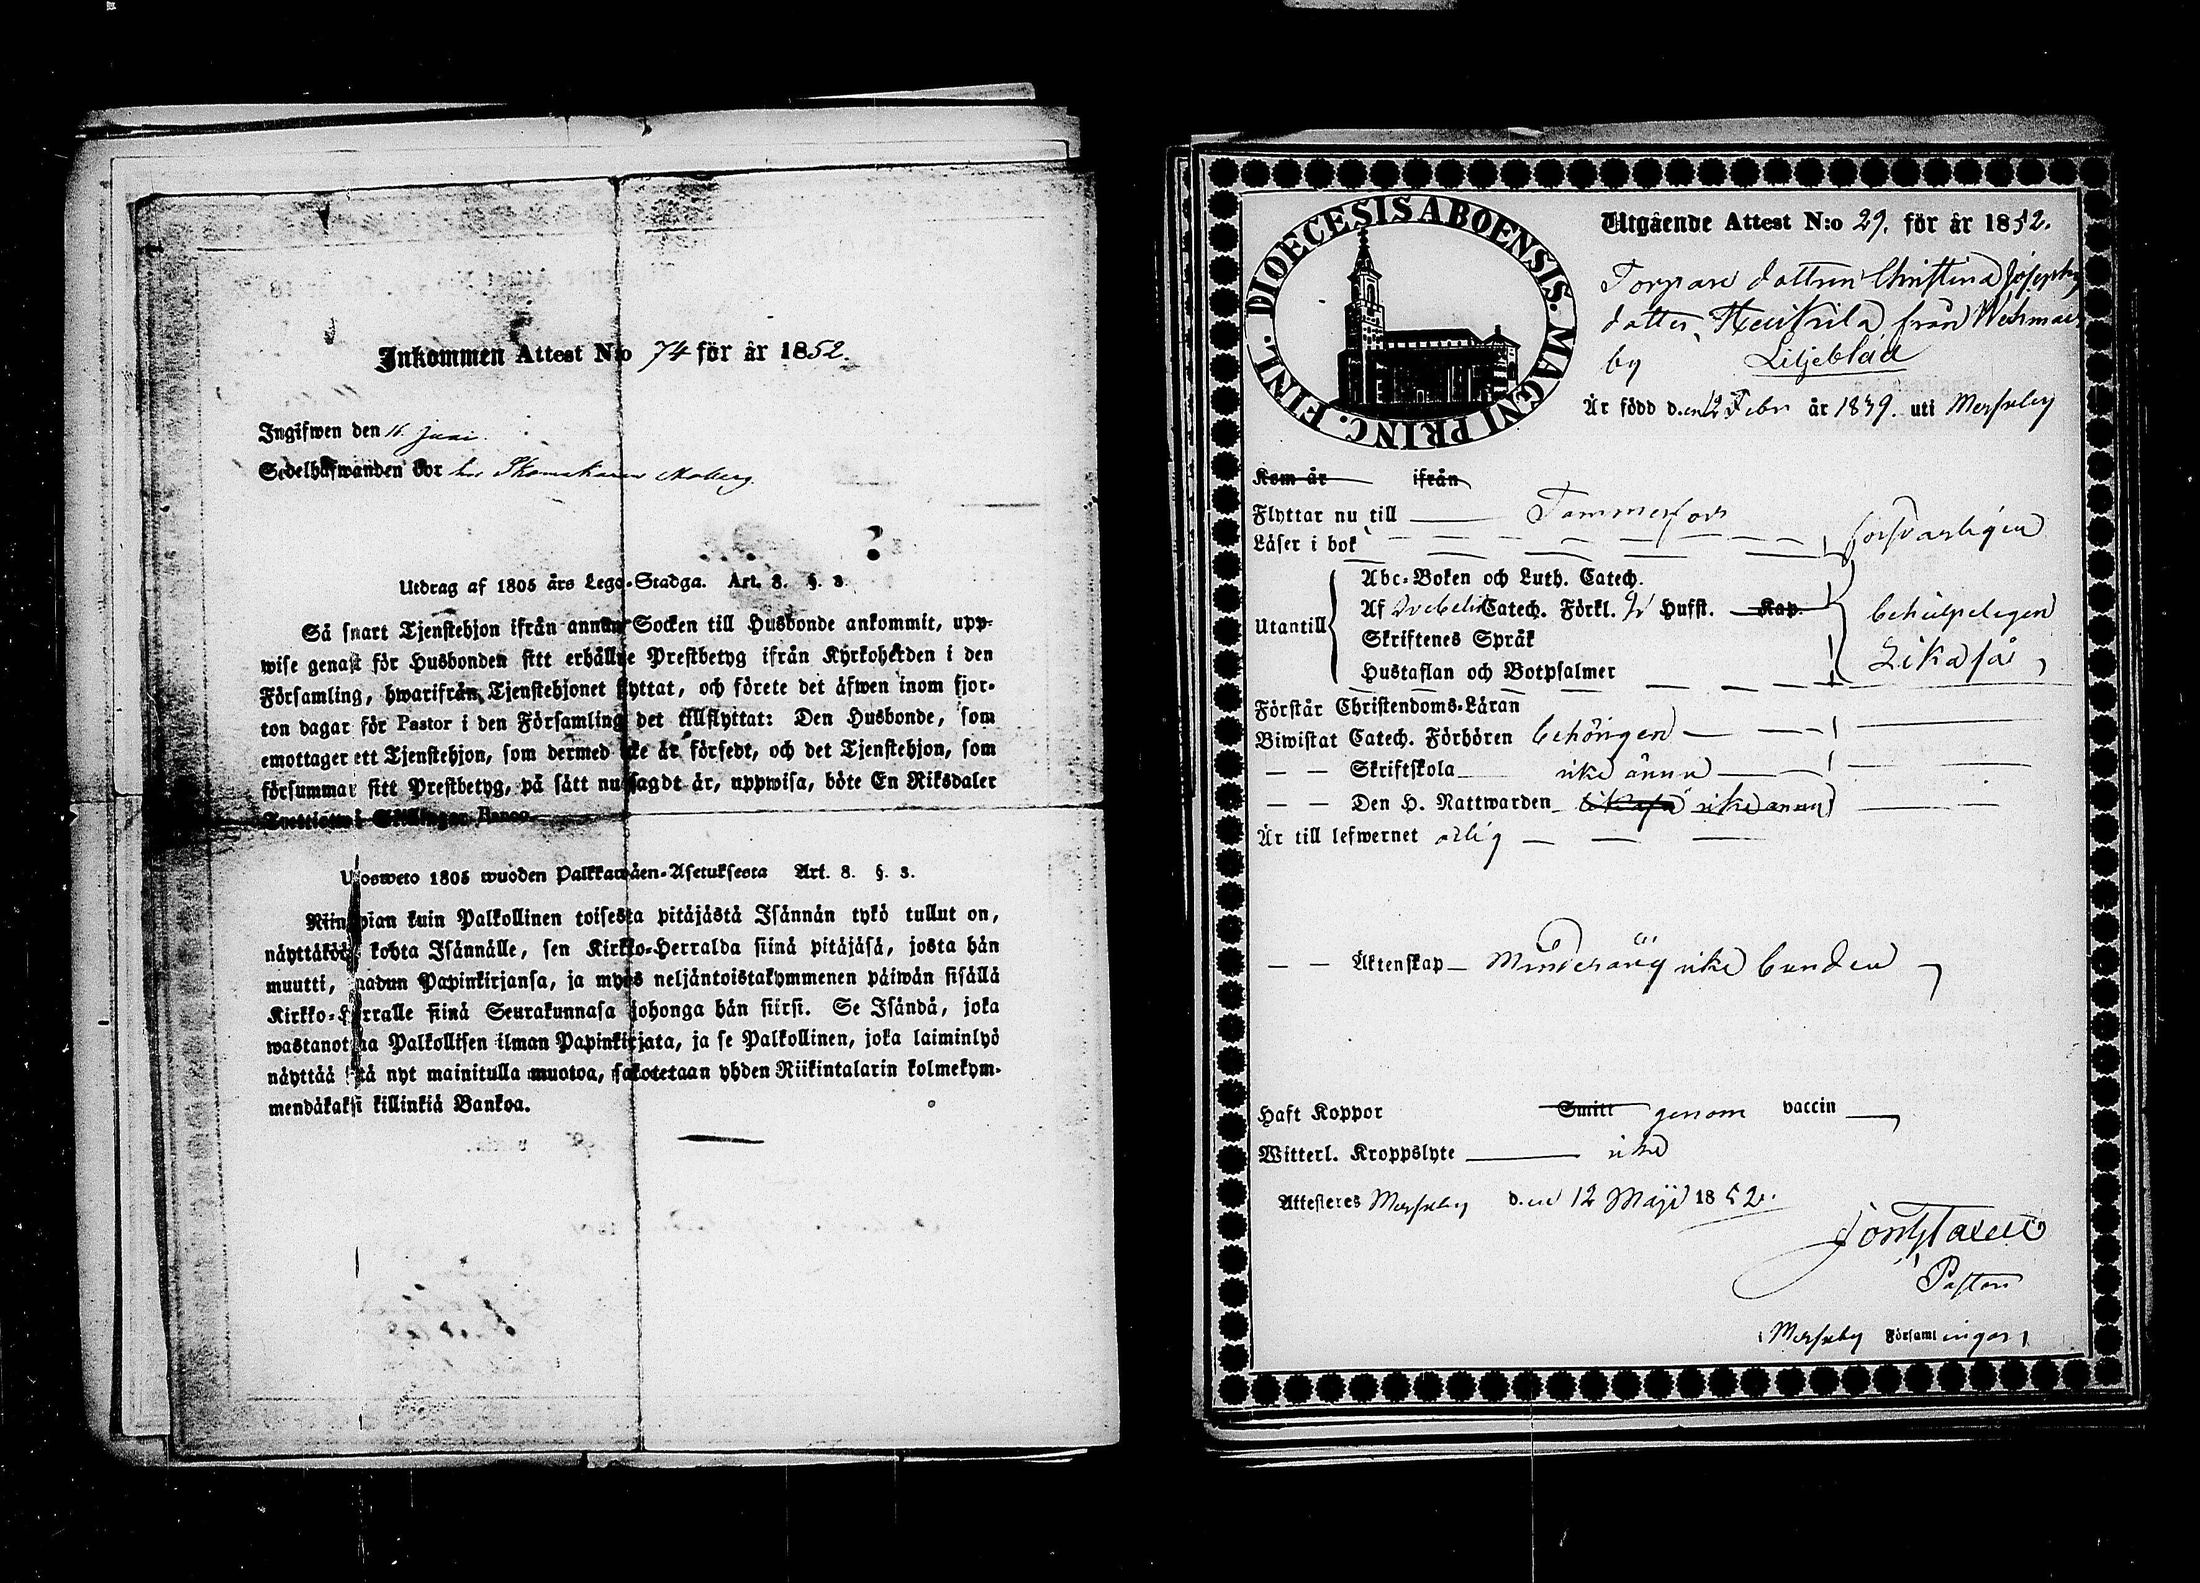 Inkommen Attest N:o 74 för år 1852.
Ingifwen den 16 Juni.
Sedelhafwanden bor hos Skomakaren Moberg.
Utdrag af 1805 års Lego-Stadga. Art. 8. §. 3.
Så snart Tjenstehjon ifrån annan Socken till Husbonde ankommit, upp-
wise genast för Husbonden sitt erhållne Prestbetyg ifrån Kyrkoherden i den
Församling, hwarifrån Tjenstehjonet flyttat, och förete det äfwen inom fjor-
ton dagar för Pastor i den Församling det tillflyttat: Den Husbonde, som
emottager ett Tjenstehjon, som dermed icke är försedt, och det Tjenstehjon, som
försummar sitt Prestbetyg, på sätt nu sagdt är, uppwisa, böte En Riksdaler
Trettiotwå Skillingar Banco.
Uosweto 1805 wuoden Palkkawäen-Asetuksesta Art. 8. §. 3.
Niin pian kuin Palkollinen toisesta pitäjästä Isännän tykö tullut on,
näyttäköön kohta Isännälle, sen Kirkko-Herralda siinä pitäjäsä, josta hän
muutti, saadun Papinkirjansa, ja myös neljäntoistakymmenen päiwän sisällä
Kirkko-Herralle siinä Seurakunnasa johonga hän siirsi. Se Isändä, joka
wastanottaa Palkollisen ilman Papinkirjata, ja se Palkollinen, joka laiminlyö
näyttää sitä nyt mainitulla muotoa, sakotetaan yhden Riikintalarin kolmekym-
mendäkaksi killinkiä Bankoa.
DIOECESIS ABOENSIS. MAGNI PRINC. FINL.
Utgående Attest N:o 29. för år 1852.
Torpare dottren Christina Josephs
dotter, Heikkilä från Wehmais
by Liljeblad
Är född d.en 12 Febr år 1839. uti Merskeby
Kom år ifrån
Flyttar nu till Tammerfors
Läser i bok försvarligen
Utantill
Abc-Boken och Luth. Catech.
Af Svebelii Catech. Förkl. Hufst. Kap. behielpeligen
Skriftenes Språk Likaså
Hustaflan och Botpsalmer
Förstår Christendoms-Läran
Biwistat Catech. Förhören behörigen
Skriftskola icke ännu
Den H. Nattwarden likaså icke ännu
Är till lefwernet ärlig
Äktenskap Minderårig icke bunden
Haft Koppor Smitt genom vaccin
Witterl. Kroppslyte icke
Attesteres Merskeby d.en 12 Maji 1852.
Pastor
Merskeby Församl ingar